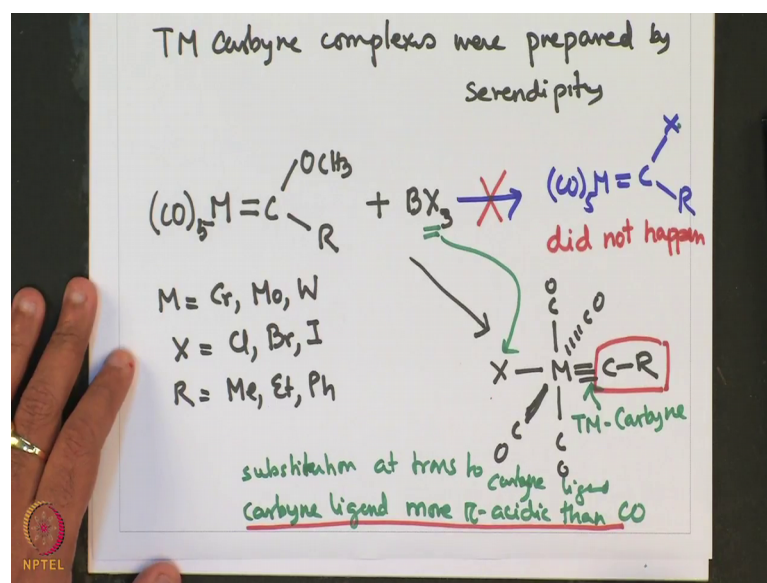 TM Carbyne complexes were prepared by
serendipity
OCH3
(CO)5M=C
R
+ BX3
X
(CO)5M=C
R
did not happen
M= Cr, Mo, W
X = Cl, Br, I
R= Me, Et, Ph
O
C
CO
X—M≡C—R
C
O
C
O
TM-Carbyne
substitution at trans to carbyne ligand
carbyne ligand more π-acidic than CO
NPTEL